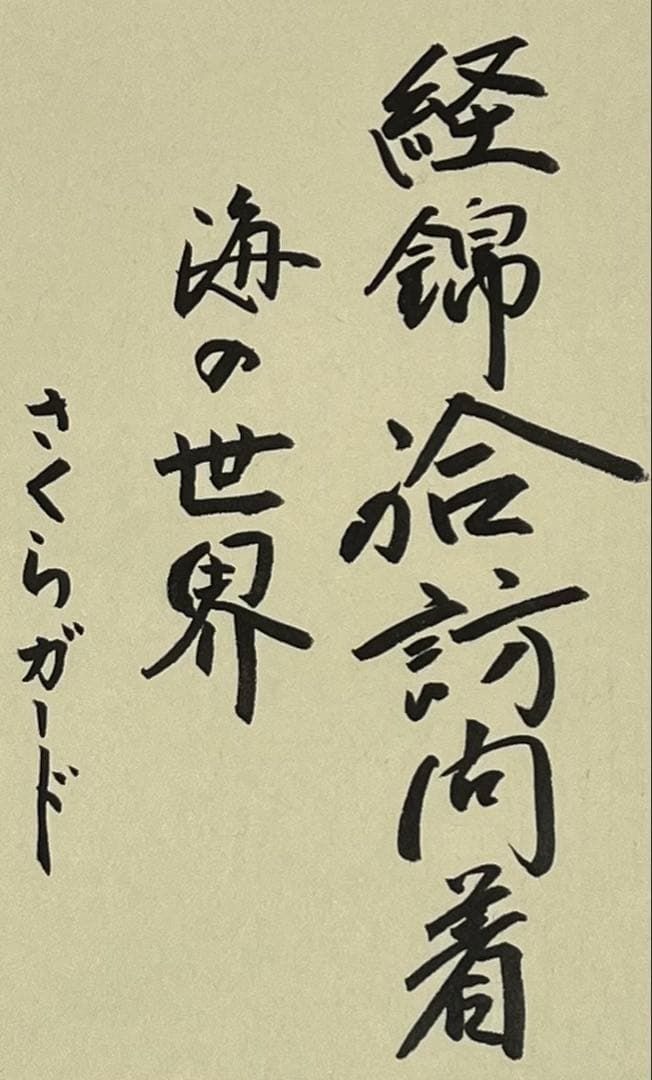 経錦洽訪問着
海の世界
さくらガード